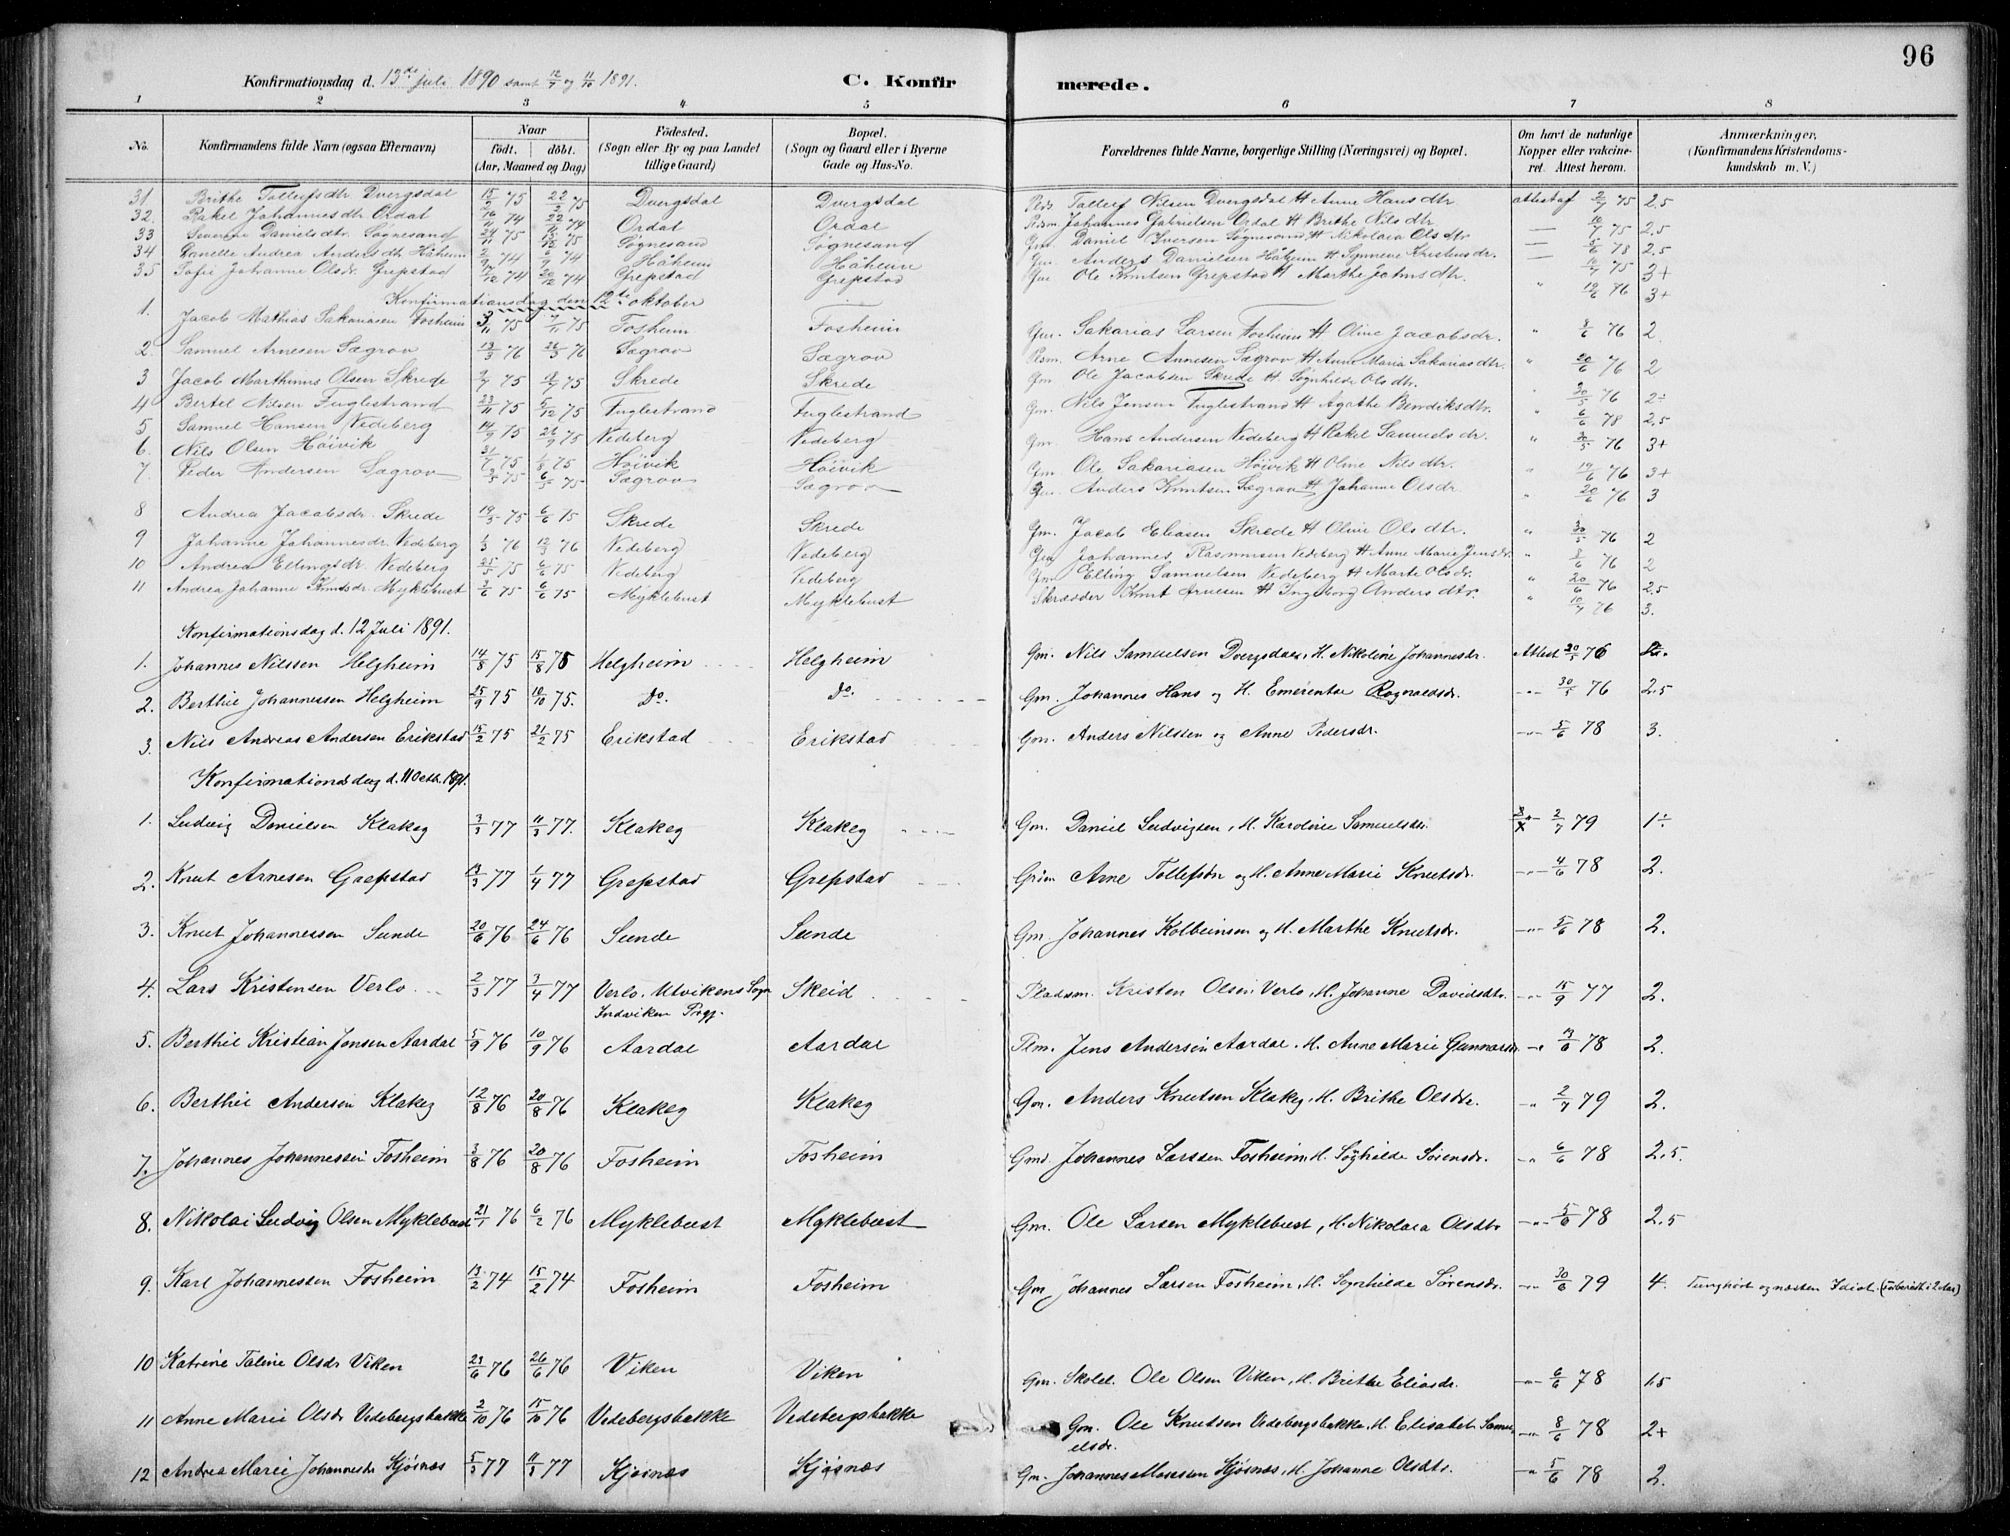 96
Konfirmationsdag d. 13de juli 1890 samt 12/7 og 11/10 1891. C. Konfirmerede.
1 2 3 4 5 6 7 8
No. Konfirmandens fulde Navn (ogsaa Efternavn) Naar født. døbt. (Aar, Maaned og Dag) Fødested. (Sogn eller By og paa Landet tillige Gaard) Bopæl. (Sogn og Gaard eller i Byerne Gade og Hus-No. Forældrenes fulde Navne, borgerlige Stilling (Næringsvei) og Bopæl. Om havt de naturlige Kopper eller vaccineret. Attest herom. Anmærkninger, (Konfirmandens Kristendomskundskab m. V.)
31 Brithe Tollefsdtr Dvergsdal 75 75 Dvergsdal Dvergsdal Tollef Nilsen Dvergsdal H Anne Hansdtr 75 2,5
32. Rakel Johannesdtr Ordal 74 74 Ordal Ordal Johannes Gabrielsen Ordal H Brithe Nilsdtr 75 2,5
33 Severine Danielsdtr. Søgnesand 75 75 Søgnesand Søgnesand Gm Daniel Iversen Søgnesand H Nikolaia Olsdtr 78 2,5
34 Danelle Andrea Andersdtr Håheim 74 74 Håheim Håheim Gm Anders Danielsen Håheim H Synneve Kristensdr. 75 3+
35 Sofie Johanne Olsdr. Grepstad 74 74 Grepstad Grepstad Gm Ole Knutsen Grepstad H Marthe Johnsdtr. 76 3+
Konfirmationsdag den 12te oktober
1. Jacob Mathias Sakariasen Fosheim 75 75 Fosheim Fosheim Gm. Sakarias Larsen Fosheim H Oline Jacobsdr. " 8/6 76 2
2. Samuel Arnesen Sægrov 13/3 76 26/3 76 Sægrov Sægrov Arne Annesen Sægrov H Anne Maria Sakariasdtr. " 20/6 76 2
3 Jacob Marthinus Olsen Skrede 75 75 Skrede Skrede Gm Ole Jacobsen Skrede H. Søgnhilde Olsdtr. 76 2÷
4 Bertel Nilsen Fuglestrand 23/11 75 5/12 75 Fuglestrand Fuglestrand Gm. Nils Jensen Fuglestrand H Agathe Bendiksdtr. " 6/6 78 2,5
5 Samuel Hansen Vedeberg 14/9 75 26/9 75 Vedeberg Vedeberg Gm. Hans Andersen Vedeberg H Rakel Samuelsdr. " 76 3+
6. Nils Olsen Høivik 31/7 75 1/8 75 Høivik Høivik Gm. Ole Sakariasen Høivik H Oline Nilsdtr. " 19/6 76 3+
7. Peder Andersen Sægrov 75 6/5 75 Sægrov Sægrov Gm. Anders Knutsen Sægrov H Johanne Olsdr. " 20/6 76 3
8 Andrea Jacobsdr. Skrede 19/5 75 6/6 75 Skrede Skrede Gm. Jacob Eliasen Skrede H Oline Olsdtr. " 30/5 76 2
9 Johanne Johannesdr. Vedeberg 1/3 76 12/3 76 Vedeberg Vedeberg Gm Johannes Rasmussen Vedeberg H Anne Marie Jensdr. " 8/6 76 2
10 Andrea Ellingsdr. Vedeberg 25/5 75 6/6 75 Vedeberg Vedeberg Gm Elling Samuelsen Vedeberg H Marte Olsdr. " 20/6 76 2,5
11 Andrea Johanne Knutsdr Myklebust 3/6 75 6/6 75 Myklebust Myklebust Skrædder Knut Arnesen H Ingeborg Andersdtr. " 10/7 76 3.
Konfirmationsdag d. 12 Juli 1891.
1. Johannes Nilssen Helgheim 14/8 75 15/8 75 Helgheim Helgheim Gm. Nils Samuelsen Dvergsdal, H. Nikoline Johannesdr. Attest 20/5 76
2. Berthie Johannessen Helgheim 25/9 75 10/10 75. Do. Do. Gm. Johannes Hans og H. Emerentse Rognaldsdr. -"- 30/5 76 2,5
3. Nils Andreas Andersen Erikstad 15/2 75 21/2 75 Erikstad Erikstad Gm. Anders Nilssen og Anne Pedersdr. -"- 5/6 78 3.
Konfirmationsdag d. 11 Octb. 1891.
1. Ludvig Danielsen Klakeg 3/3 77 11/3 77. Klakeg Klakeg Gm. Daniel Ludvigsen, H. Karoline Samuelsdr. 2/7 79 1÷
2. Knut Arnesen Grepstad 13/3 77 1/4 77 Grepstad Grepstad Arne Tollefsøn og H. Anne Marie Knutsdr. -"- 4/6 78 2.
3. Knut Johannessen Sunde 20/6 76 24/6 76 Sunde Sunde Gm Johannes Kolbeinsen og H. Marthe Knutsdr. -"- 5/6 78 2.
4. Lars Kristensen Verlo 2/3 77 3/4 77 Verlo. Utvikens Sogn Indviken Prgj. Skeid Pladsm. Kristen Olsen Verlo, H. Johanne Davidsdtr. -"- 15/9 77 2.
5. Berthie Kristian Jonsen Aardal 5/9 76 10/9 76 Aardal Aardal Plm. Jens Andersen Aardal. H. Anne Marie Gunnarsdr. -"- 78 2.
6. Berthie Andersen Klakeg 12/8 76 20/8 76 Klakeg Klakeg Gm. Anders Knutsen Klakeg, H. Brithe Olsdtr. -"- 2/7 79 2.
7. Johannes Johannessen Fosheim 3/8 76 20/8 76 Fosheim Fosheim Gmd. Johannes Larssen Fosheim, H. Søghilde Sørensdr. -"- 6/6 78 2.5.
8. Nikolai Ludvig Olsen Myklebust 21/1 76 6/2 76 Myklebust Myklebust Gm. Ole Larsen Myklebust, H. Nikolaia Olsdtr -"- 5/6 78 2.5
9. Karl Johannessen Fosheim 13/2 74 15/2 74 Fosheim Fosheim Gm Johannes Larsen Fosheim, H. Sognhilde Sørensdr. -"- 30/6 79 4. Tunghørt og næsten Idiot. (forberedt i 2 Aar)
10 Katrine Taline Olsdr Viken 23/6 76 26/6 76 Viken Viken Gm. Skolel. Ole Olsen Viken, H. Brithe Eliasdr. -"- 6/6 78 1.5
11 Anne Marie Olsdr Vedebergsbakke 2/10 76 15/10 76 Vedebergsbakke Vedebergsbakke Gm. Ole Knutsen Vedebergsbakke, H. Elisabet Samuelsdr. -"- 8/6 78 2+
12 Andrea Marie Johannesdr Kjøsnæs 5/3 77 11/3 77 Kjøsnæs Kjøsnæs Gm. Johannes Mosessen Kjøsnæs, H. Johanne Olsdtr. -"- 5/6 78 2.